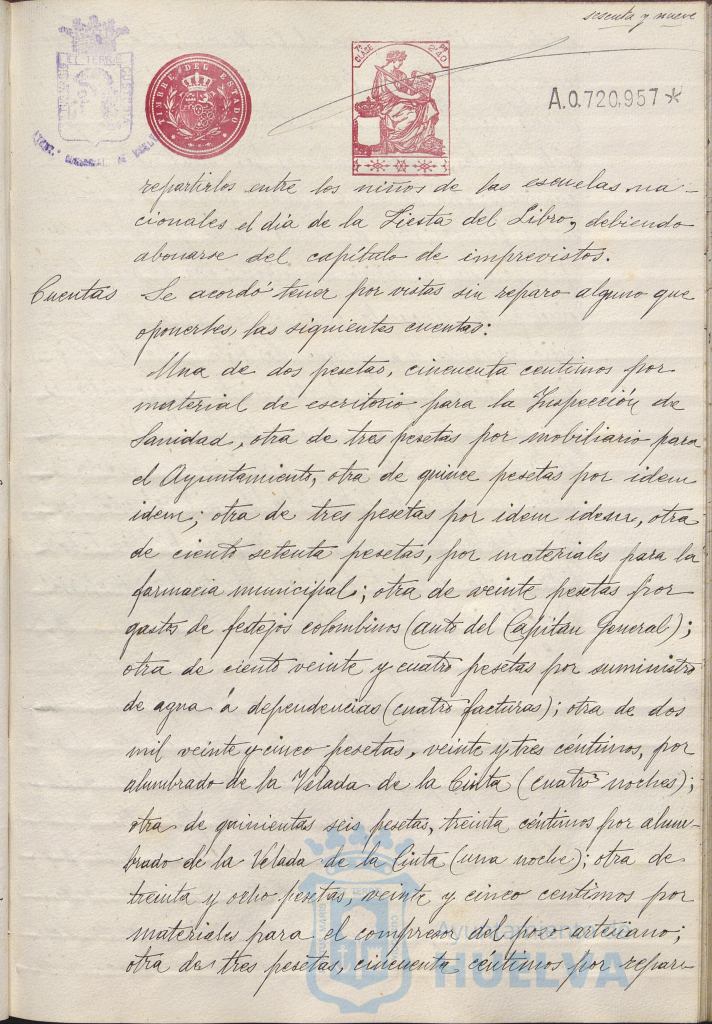 sesenta y nueve
TIMBRE DEL ESTADO
7ª CLASE
PS 2'40
A.0.720,957*
repartirlos entre los niños de las escuelas na-
cionales el dia de la Fiesta del Libro, debiendo
abonarse del capítulo de imprevistos.
Cuentas Se acordó tener por vistas sin reparo alguno que
oponerles, las siguientes cuentas:
Una de dos pesetas, cincuenta centimos por
material de escritorio para la Inspección de
Sanidad, otra de tres pesetas por mobiliario para
el Ayuntamiento, otra de quince pesetas por idem
idem; otra de tres pesetas por idem idem, otra
de ciento setenta pesetas, por materiales para la
farmacia municipal; otra de veinte pesetas por
gastos de festejos colombinos (auto del Capitan General);
otra de ciento veinte y cuatro pesetas por suministro
de agua á dependencias (cuatro facturas); otra de dos
mil veinte y cinco pesetas, veinte y tres céntimos, por
alumbrado de la Velada de la Cinta (cuatro noches);
otra de quinientas seis pesetas, treinta céntimos por alum-
brado de la Velada de la Cinta (una noche); otra de
treinta y ocho pesetas, veinte y cinco centimos por
materiales para el compresor del pozo artesiano;
otra de tres pesetas, cincuenta céntimos por repara-
Ayuntamiento de
HUELVA